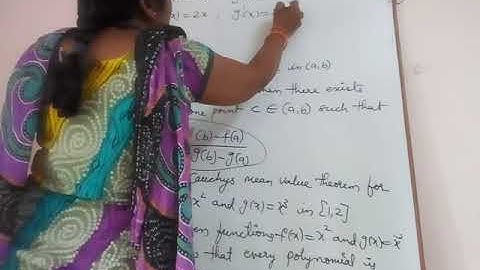 x) = 2x , g'(x) =
in (a,b)
then there exists
one point C ∈ (a,b) such that
(b) - f(a)
g(b) - g(a)
Cauchys mean value theorem for
x² and g(x) = x³ in [1,2]
functions f(x) = x² and g(x) = x³
that every polynomial is